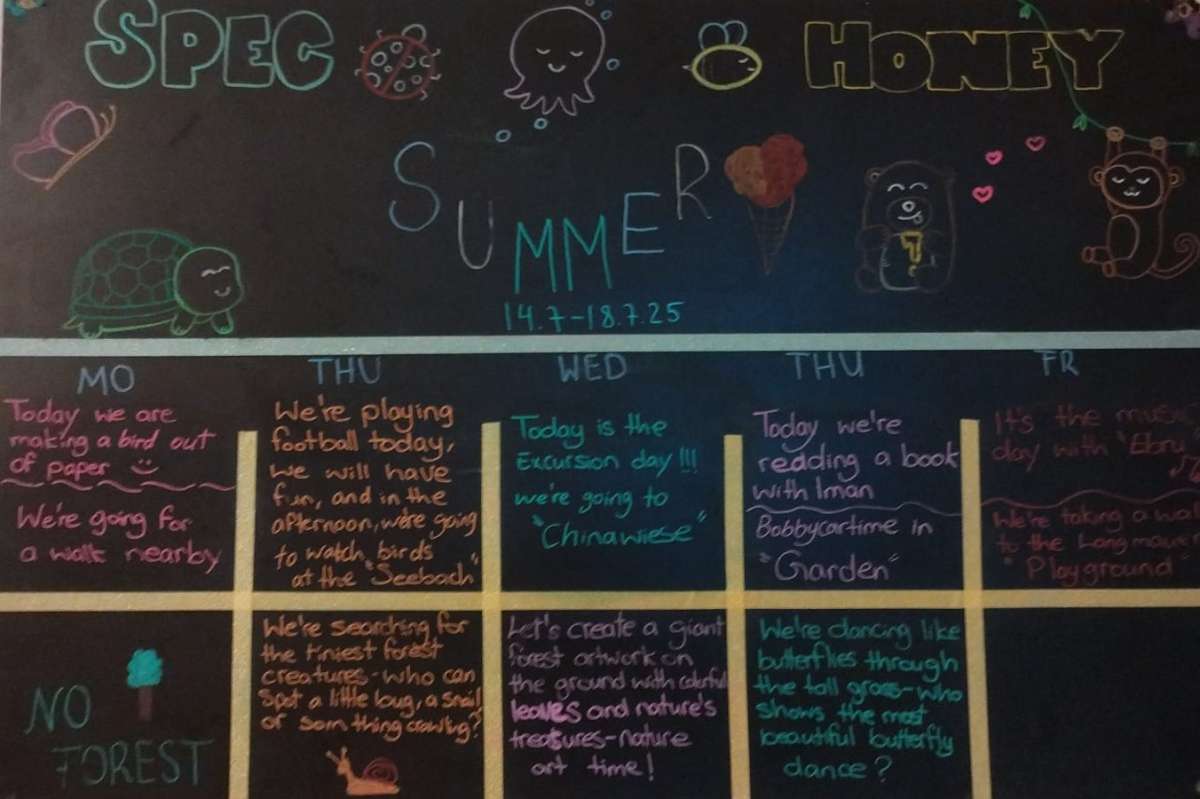 SPEC HONEY
SUMMER
14.7-18.7.25
MO
Today we are
making a bird out
of paper
We're going for
a walk nearby
THU
We're playing
football today,
we will have
fun, and in the
afternoon, we're going
to watch birds
at the "Seebach"
WED
Today is the
Excursion day!!!
we're going to
"Chinawiese"
THU
Today we're
redding a book
with Iman
Bobbycartime in
"Garden"
FR
It's the music
day with "Ebru
We're taking a
to the
"Playground"
NO
FOREST
We're searching for
the tiniest forest
creatures-who can
spot a little bug, a snail
or som thing crawling?
Let's create a giant
forest artwork on
the ground with colorful
leaves and nature's
treasures-nature
art time!
We're dancing like
butterflies through
the tall grass-who
shows the most
beautiful butterfly
dance?